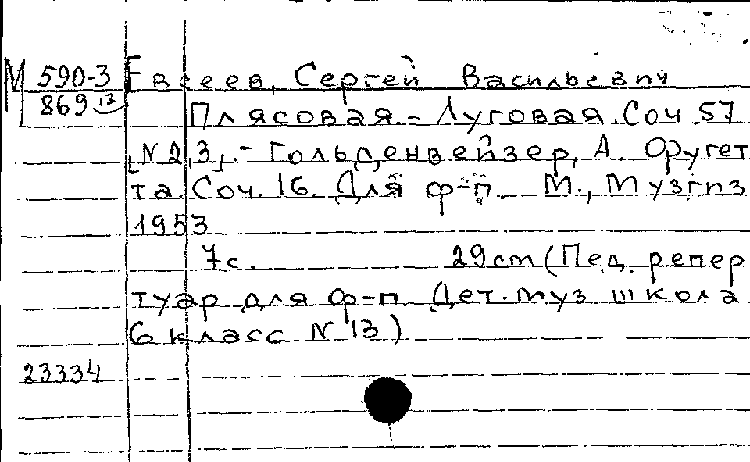 М 590-3 Евсеев, Сергей Васильевич
869 13 Плясовая. – Луговая. Соч 57
[N 2,3]. – Гольденвейзер, А. Фугет
та. Соч. 16. Для ф-п. М., Музгиз
1953
7 с. 29 cm (Пед. репер
туар для ф-п. Дет. муз школа
6 класс N 13)
23334